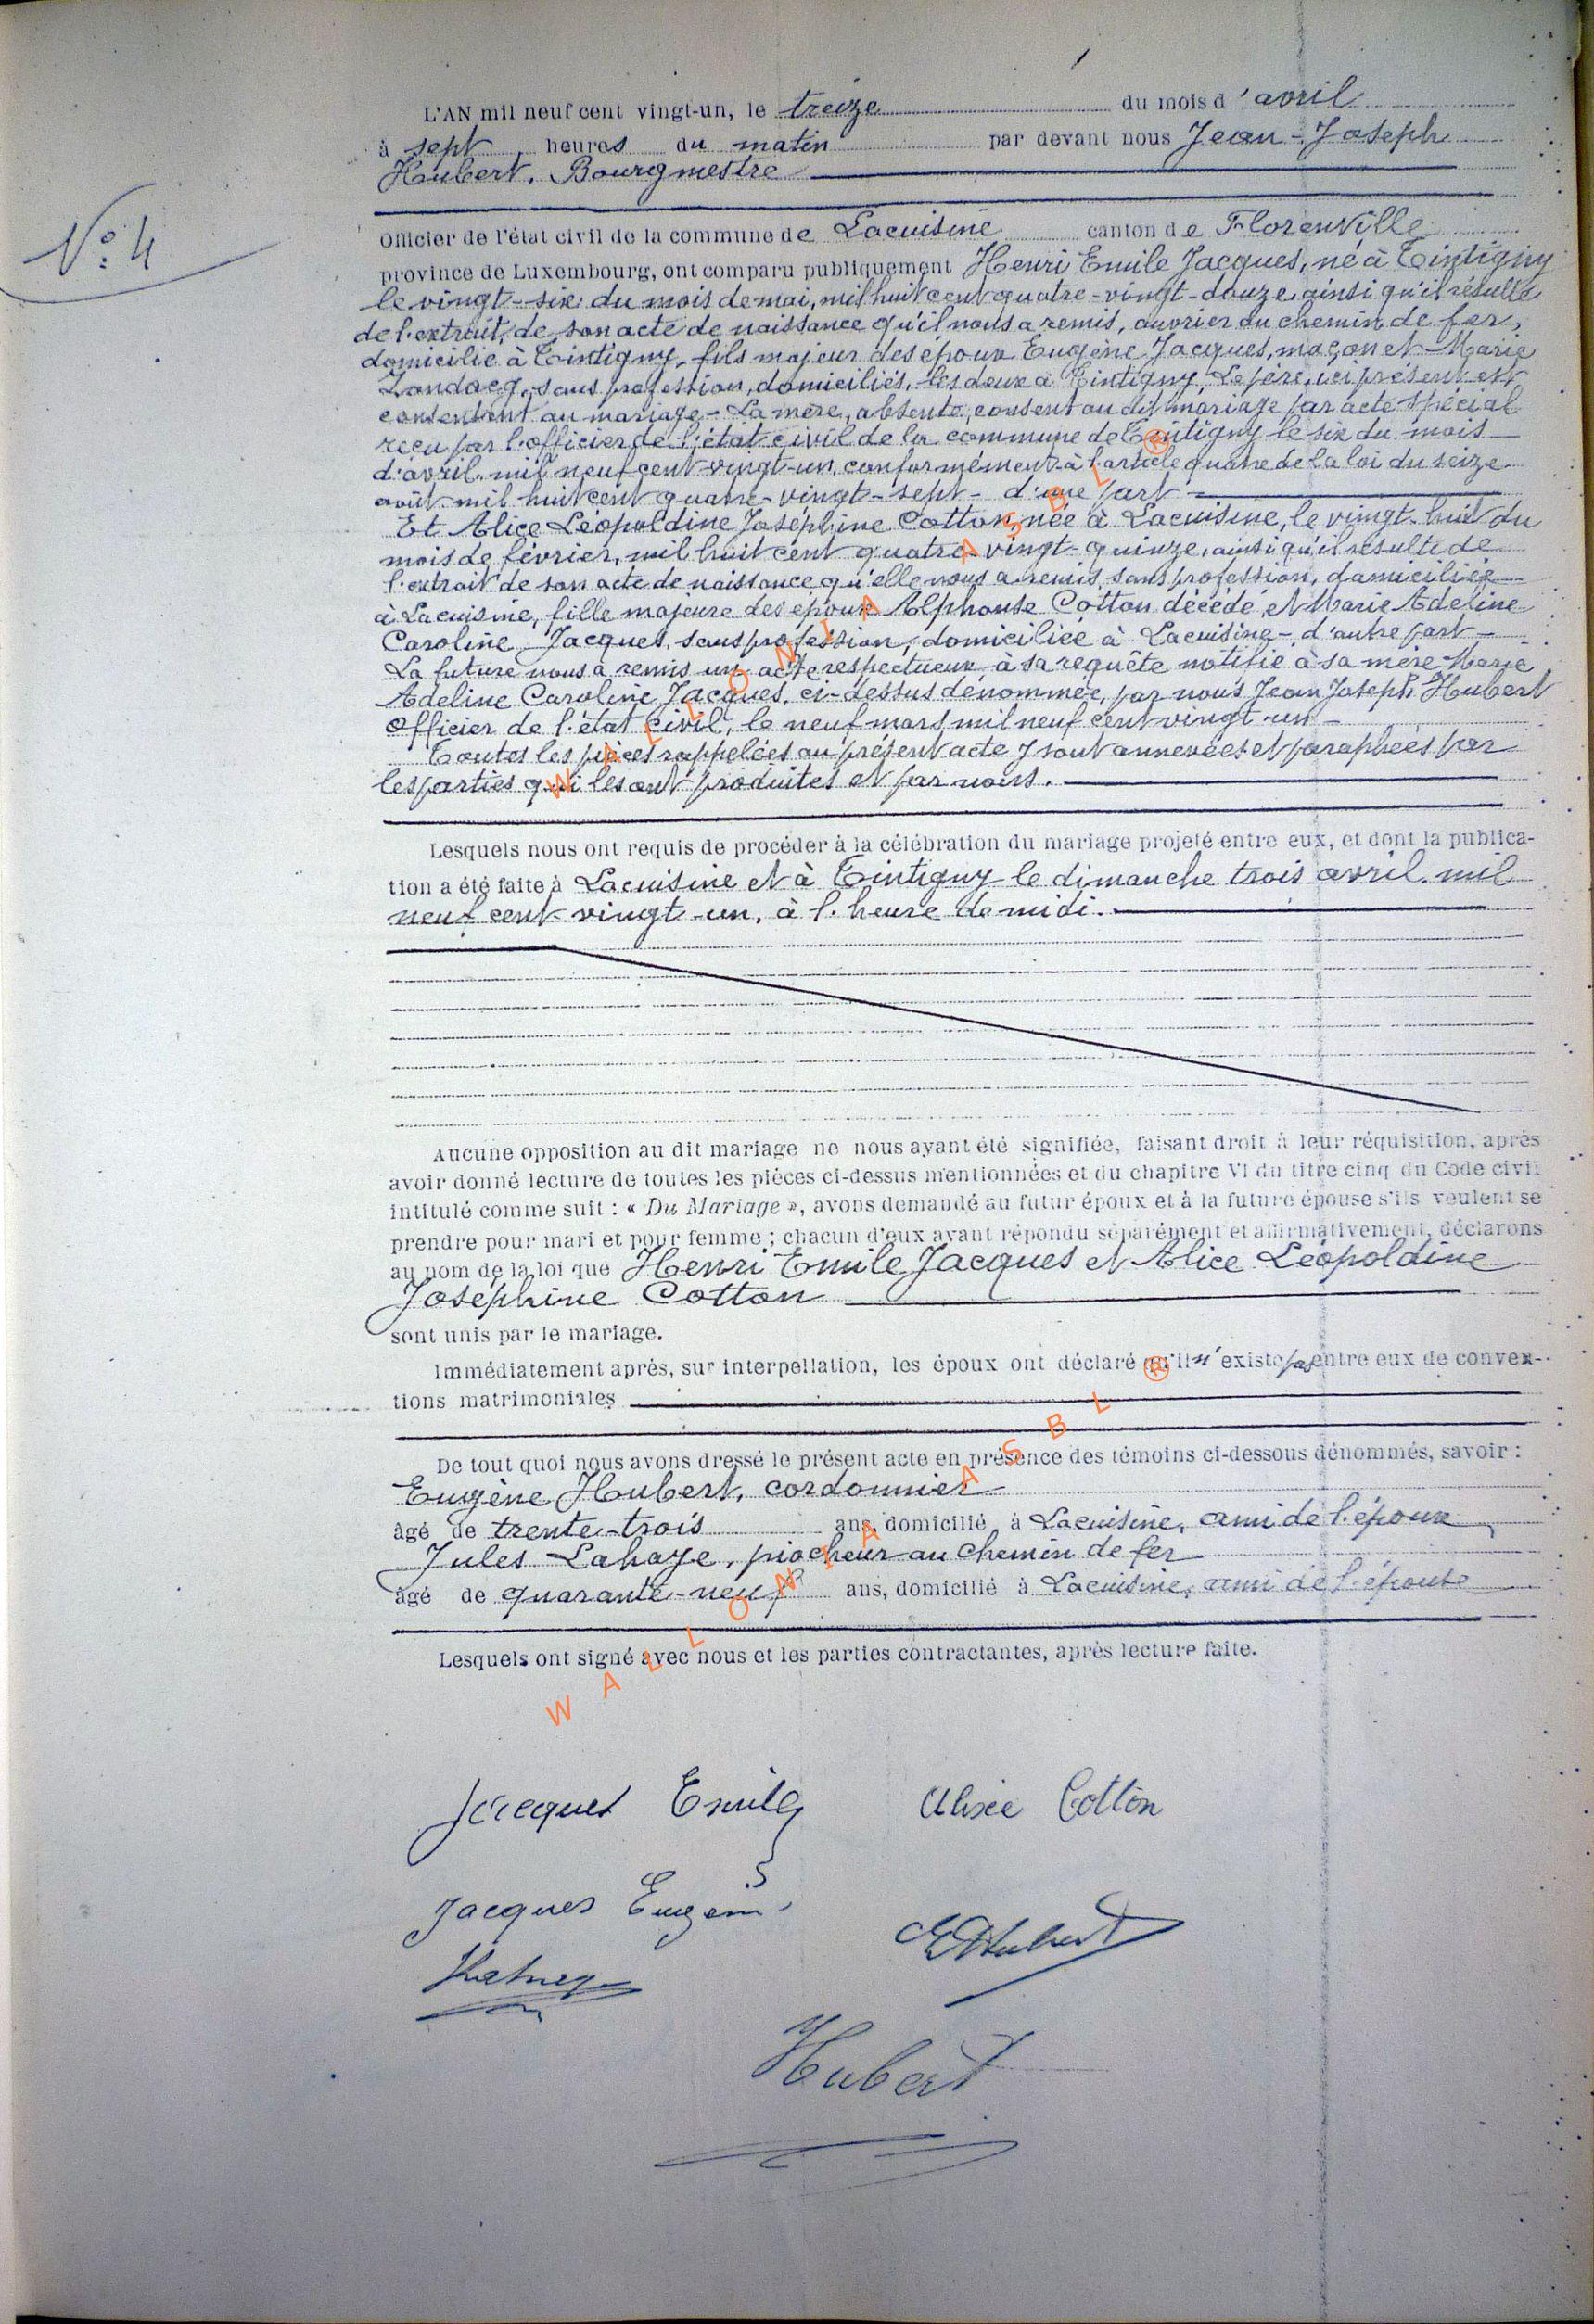 N° 4
L'AN mil neuf cent vingt-un, le treize du mois d'avril
à sept heures du matin par devant nous Jean-Joseph
Hubert, Bourgmestre
Officier de l'état civil de la commune de Lacuisine canton de Florenville
province de Luxembourg, ont comparu publiquement Henri Emile Jacques, né à Tintigny
le vingt-six du mois de mai, mil huit cent quatre-vingt-douze, ainsi qu'il résulte
de l'extrait de son acte de naissance qu'il nous a remis, ouvrier au chemin de fer,
domicilié à Tintigny, fils majeur des époux Eugène Jacques, maçon et Marie
sans profession, domiciliés, les deux à Tintigny. Le père, ici présent est
consentant au mariage - La mère, absente, consent au dit mariage par acte spécial
reçu par l'officier de l'état civil de la commune de Tintigny le six du mois
d'avril mil neuf cent vingt-un, conformément à l'article quatre de la loi du seize
août mil huit cent quatre-vingt-sept - d'une part
Et Alice Léopoldine Joséphine Cotton, née à Lacuisine, le vingt-huit du
mois de février, mil huit cent quatre-vingt-quinze, ainsi qu'il résulte de
l'extrait de son acte de naissance qu'elle nous a remis, sans profession, domiciliée
à Lacuisine, fille majeure des époux Alphonse Cotton décédé, et Marie Adeline
Caroline Jacques, sans profession, domiciliée à Lacuisine - d'autre part -
La future nous a remis un acte respectueux à sa requête notifié à sa mère Marie
Adeline Caroline Jacques, ci-dessus dénommée, par nous Jean Joseph Hubert
Officier de l'état civil, le neuf mars mil neuf cent vingt-un -
Toutes les pièces rappelées au présent acte y sont annexées et paraphées par
les parties qui les ont produites et par nous.
Lesquels nous ont requis de procéder à la célébration du mariage projeté entre eux, et dont la publica-
tion a été faite à Lacuisine et à Tintigny le dimanche trois avril mil
neuf cent vingt-un, à l'heure de midi.
Aucune opposition au dit mariage ne nous ayant été signifiée, faisant droit à leur réquisition, après
avoir donné lecture de toutes les pièces ci-dessus mentionnées et du chapitre VI du titre cinq du Code civil
intitulé comme suit : « Du Mariage », avons demandé au futur époux et à la future épouse s'ils veulent se
prendre pour mari et pour femme ; chacun d'eux ayant répondu séparément et affirmativement, déclarons
au nom de la loi que Henri Emile Jacques et Alice Léopoldine
Joséphine Cotton
sont unis par le mariage.
Immédiatement après, sur interpellation, les époux ont déclaré qu'il n'existe pas entre eux de conven-
tions matrimoniales
De tout quoi nous avons dressé le présent acte en présence des témoins ci-dessous dénommés, savoir :
Eugène Hubert, cordonnier
âgé de trente-trois ans, domicilié à Lacuisine, ami de l'époux
Jules Lahaye, piocheur au chemin de fer
âgé de quarante-neuf ans, domicilié à Lacuisine, ami de l'épouse
Lesquels ont signé avec nous et les parties contractantes, après lecture faite.
Jacques Emile Alice Cotton
Jacques Eugène
EHubert
Hubert
WALLONIA ASBL ®
WALLONIA ASBL ®